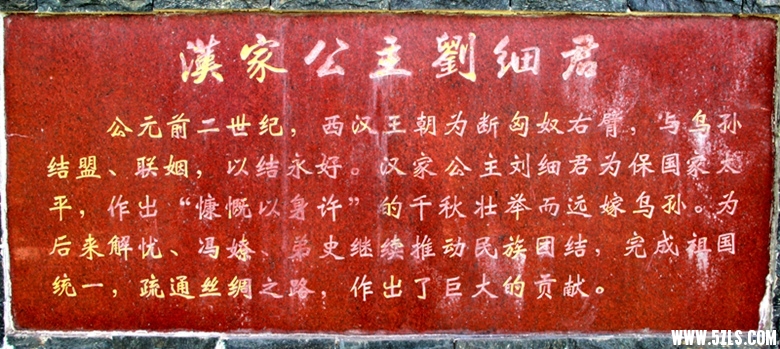 漢家公主劉细君
公元前二世纪，西汉王朝为断匈奴右臂，与乌孙
结盟、联姻，以结永好。汉家公主刘细君为保国家太
平，作出“慷慨以身许”的千秋壮举而远嫁乌孙。为
后来解忧、冯嫽、弟史继续推动民族团结，完成祖国
统一，疏通丝绸之路，作出了巨大的贡献。
WWW.5ZLS.COM